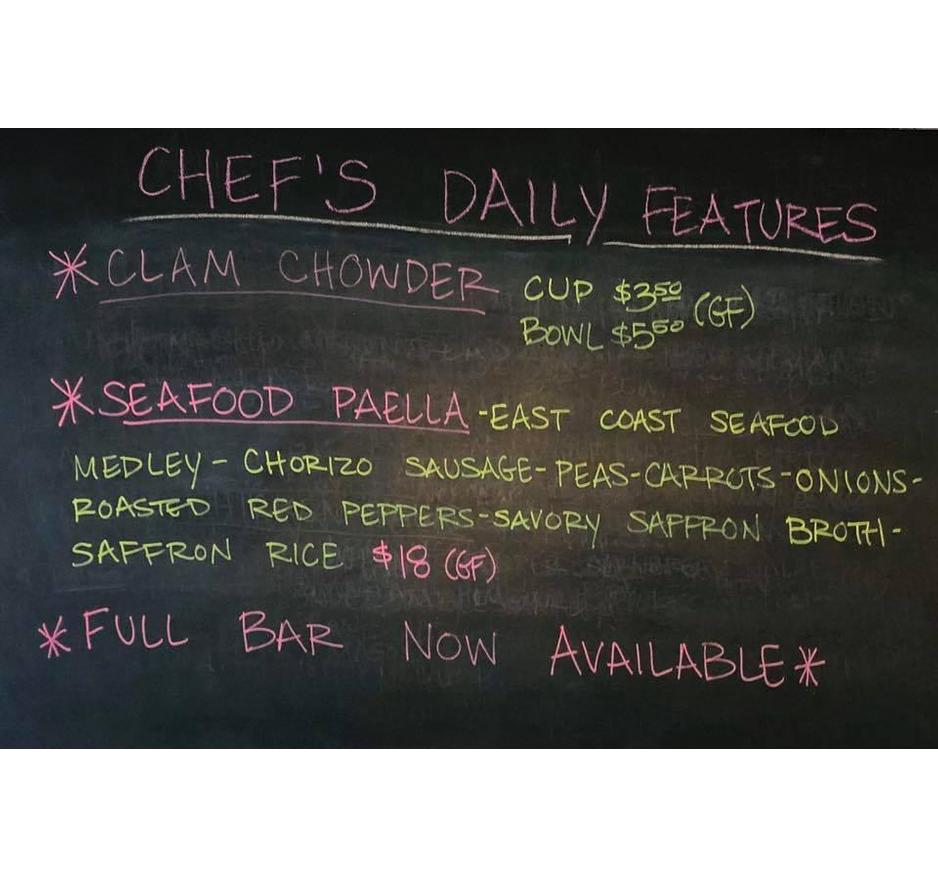 CHEF'S DAILY FEATURES
*CLAM CHOWDER CUP $3.50 (GF)
BOWL $5.50
*SEAFOOD PAELLA -EAST COAST SEAFOOD
MEDLEY - CHORIZO SAUSAGE-PEAS-CARROTS-ONIONS-
ROASTED RED PEPPERS-SAVORY SAFFRON BROTH-
SAFFRON RICE $18 (GF)
*FULL BAR NOW AVAILABLE*